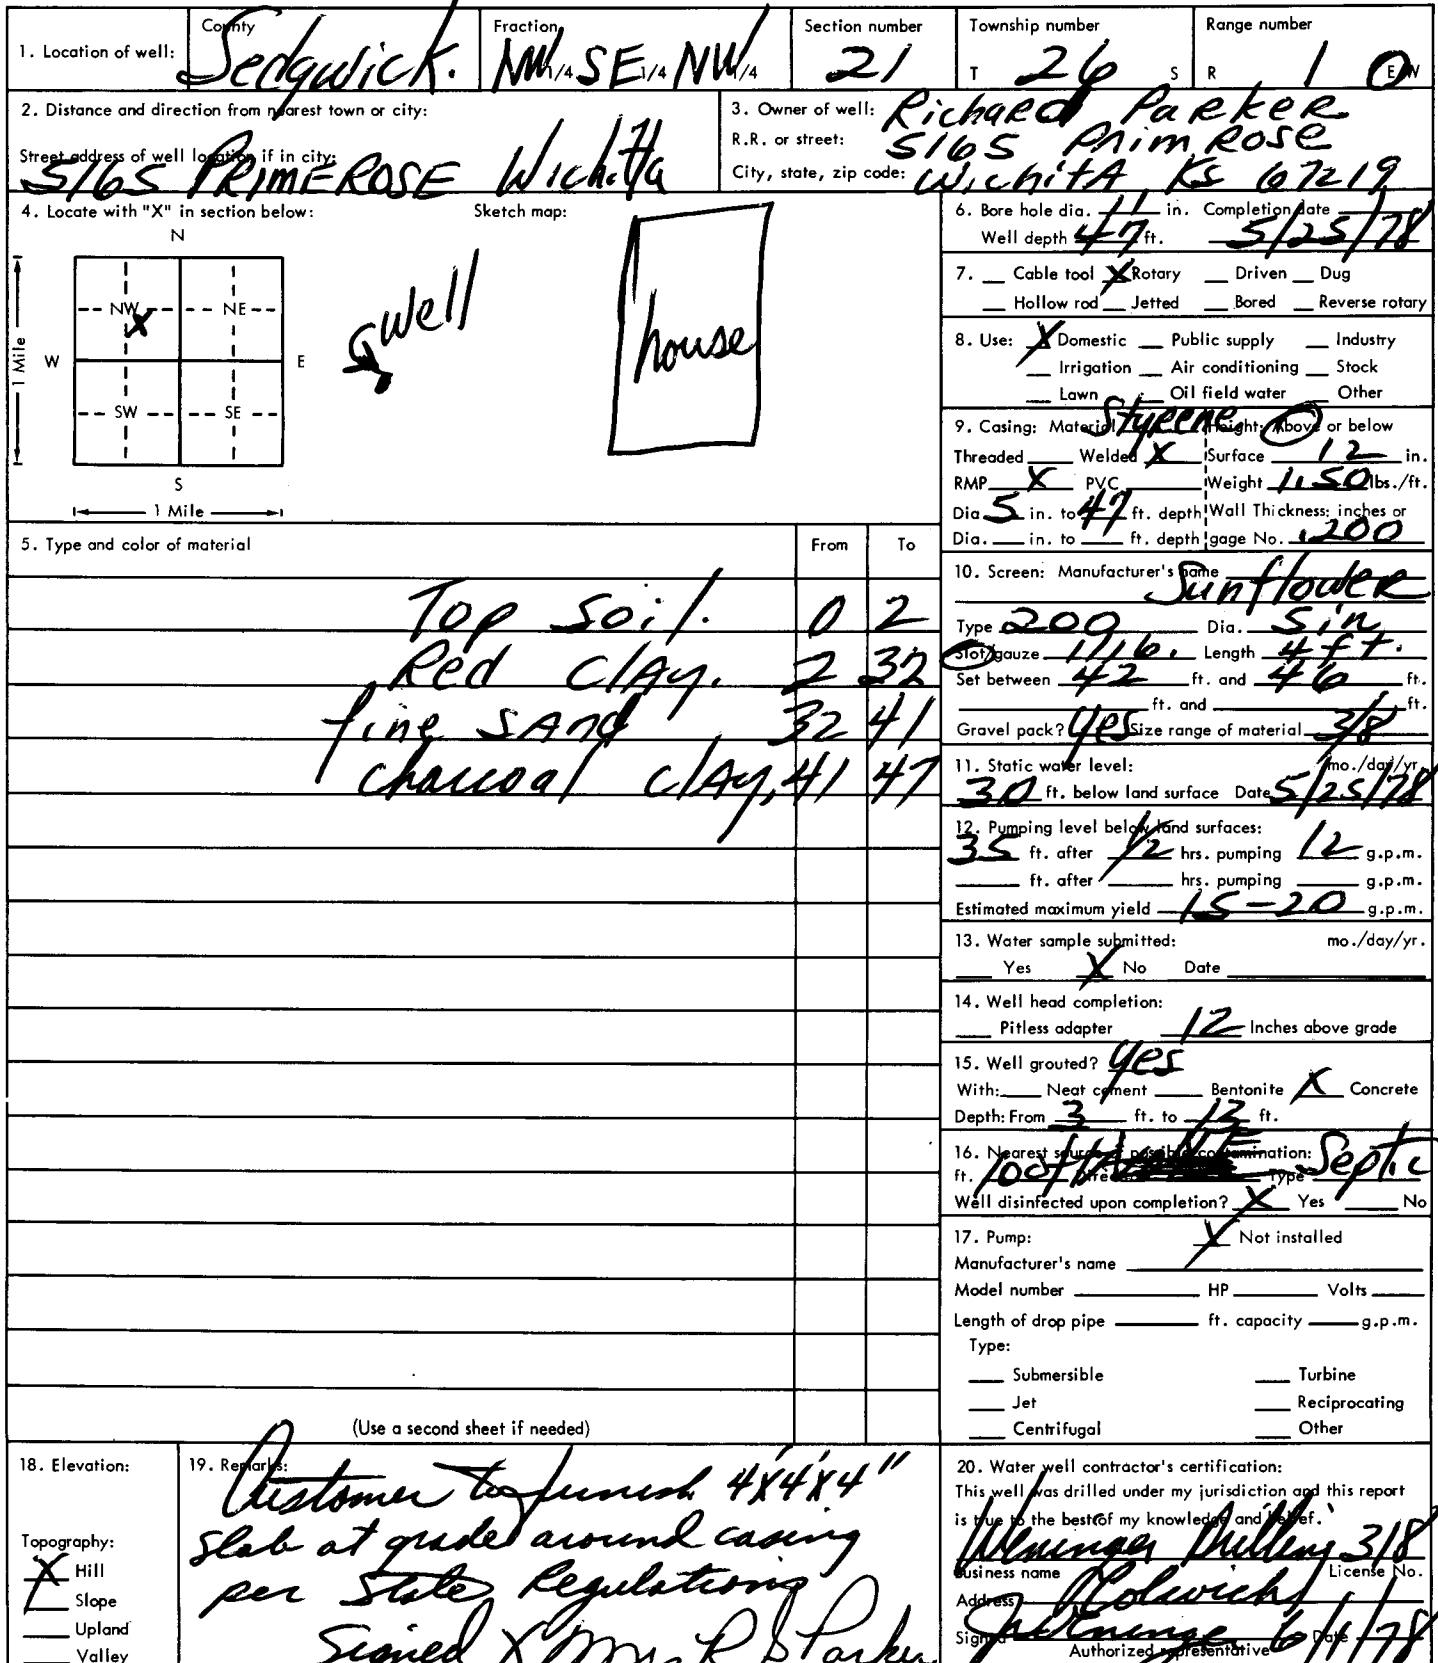 1. Location of well: County Sedgwick. Fraction NW 1/4 SE 1/4 NW 1/4 Section number 21 Township number T 26 S Range number R 1 E/W
2. Distance and direction from nearest town or city:
Street address of well location if in city:
5165 PRIMEROSE Wichita
3. Owner of well: Richard Parker
R.R. or street: 5165 PrimRose
City, state, zip code: Wichita, Ks 67219
4. Locate with "X" in section below:
Sketch map:
N
NW NE
X
W E
SW SE
S
1 Mile
1 Mile
well
house
6. Bore hole dia. 11 in. Completion date
Well depth 47 ft. 5/25/78
7. Cable tool X Rotary Driven Dug
Hollow rod Jetted Bored Reverse rotary
8. Use: X Domestic Public supply Industry
Irrigation Air conditioning Stock
Lawn Oil field water Other
9. Casing: Material Styrene Height: Above or below
Threaded Welded X Surface 12 in.
RMP X PVC Weight 1.50 lbs./ft.
Dia 5 in. to 47 ft. depth Wall Thickness: inches or
Dia. in. to ft. depth gage No. .200
5. Type and color of material From To
Top Soil. 0 2
Red Clay. 2 32
fine SAnd 32 41
Charcoal ClAy, 41 47
(Use a second sheet if needed)
10. Screen: Manufacturer's name
Sunflower
Type 200 Dia. 5 in
Slot/gauze 1/16. Length 4 ft.
Set between 42 ft. and 46 ft.
ft. and ft.
Gravel pack? yes Size range of material 3/8
11. Static water level: mo./day/yr.
30 ft. below land surface Date 5/25/78
12. Pumping level below land surfaces:
35 ft. after 1/2 hrs. pumping 12 g.p.m.
ft. after hrs. pumping g.p.m.
Estimated maximum yield 15-20 g.p.m.
13. Water sample submitted: mo./day/yr.
Yes X No Date
14. Well head completion:
Pitless adapter 12 Inches above grade
15. Well grouted? yes
With: Neat cement Bentonite X Concrete
Depth: From 3 ft. to 13 ft.
16. Nearest source of possible contamination:
ft. 100 ft Direction Type Septic
Well disinfected upon completion? X Yes No
17. Pump: X Not installed
Manufacturer's name
Model number HP Volts
Length of drop pipe ft. capacity g.p.m.
Type:
Submersible Turbine
Jet Reciprocating
Centrifugal Other
18. Elevation:
Topography:
X Hill
Slope
Upland
Valley
19. Remarks:
Customer to furnish 4'x4'x4"
slab at grade around casing
per State Regulations
Signed X Mrs R S Parker
20. Water well contractor's certification:
This well was drilled under my jurisdiction and this report
is true to the best of my knowledge and belief.
Weninger Drilling 318
Business name License No.
Address Colwich
Signed Weninger Date 6/1/78
Authorized representative